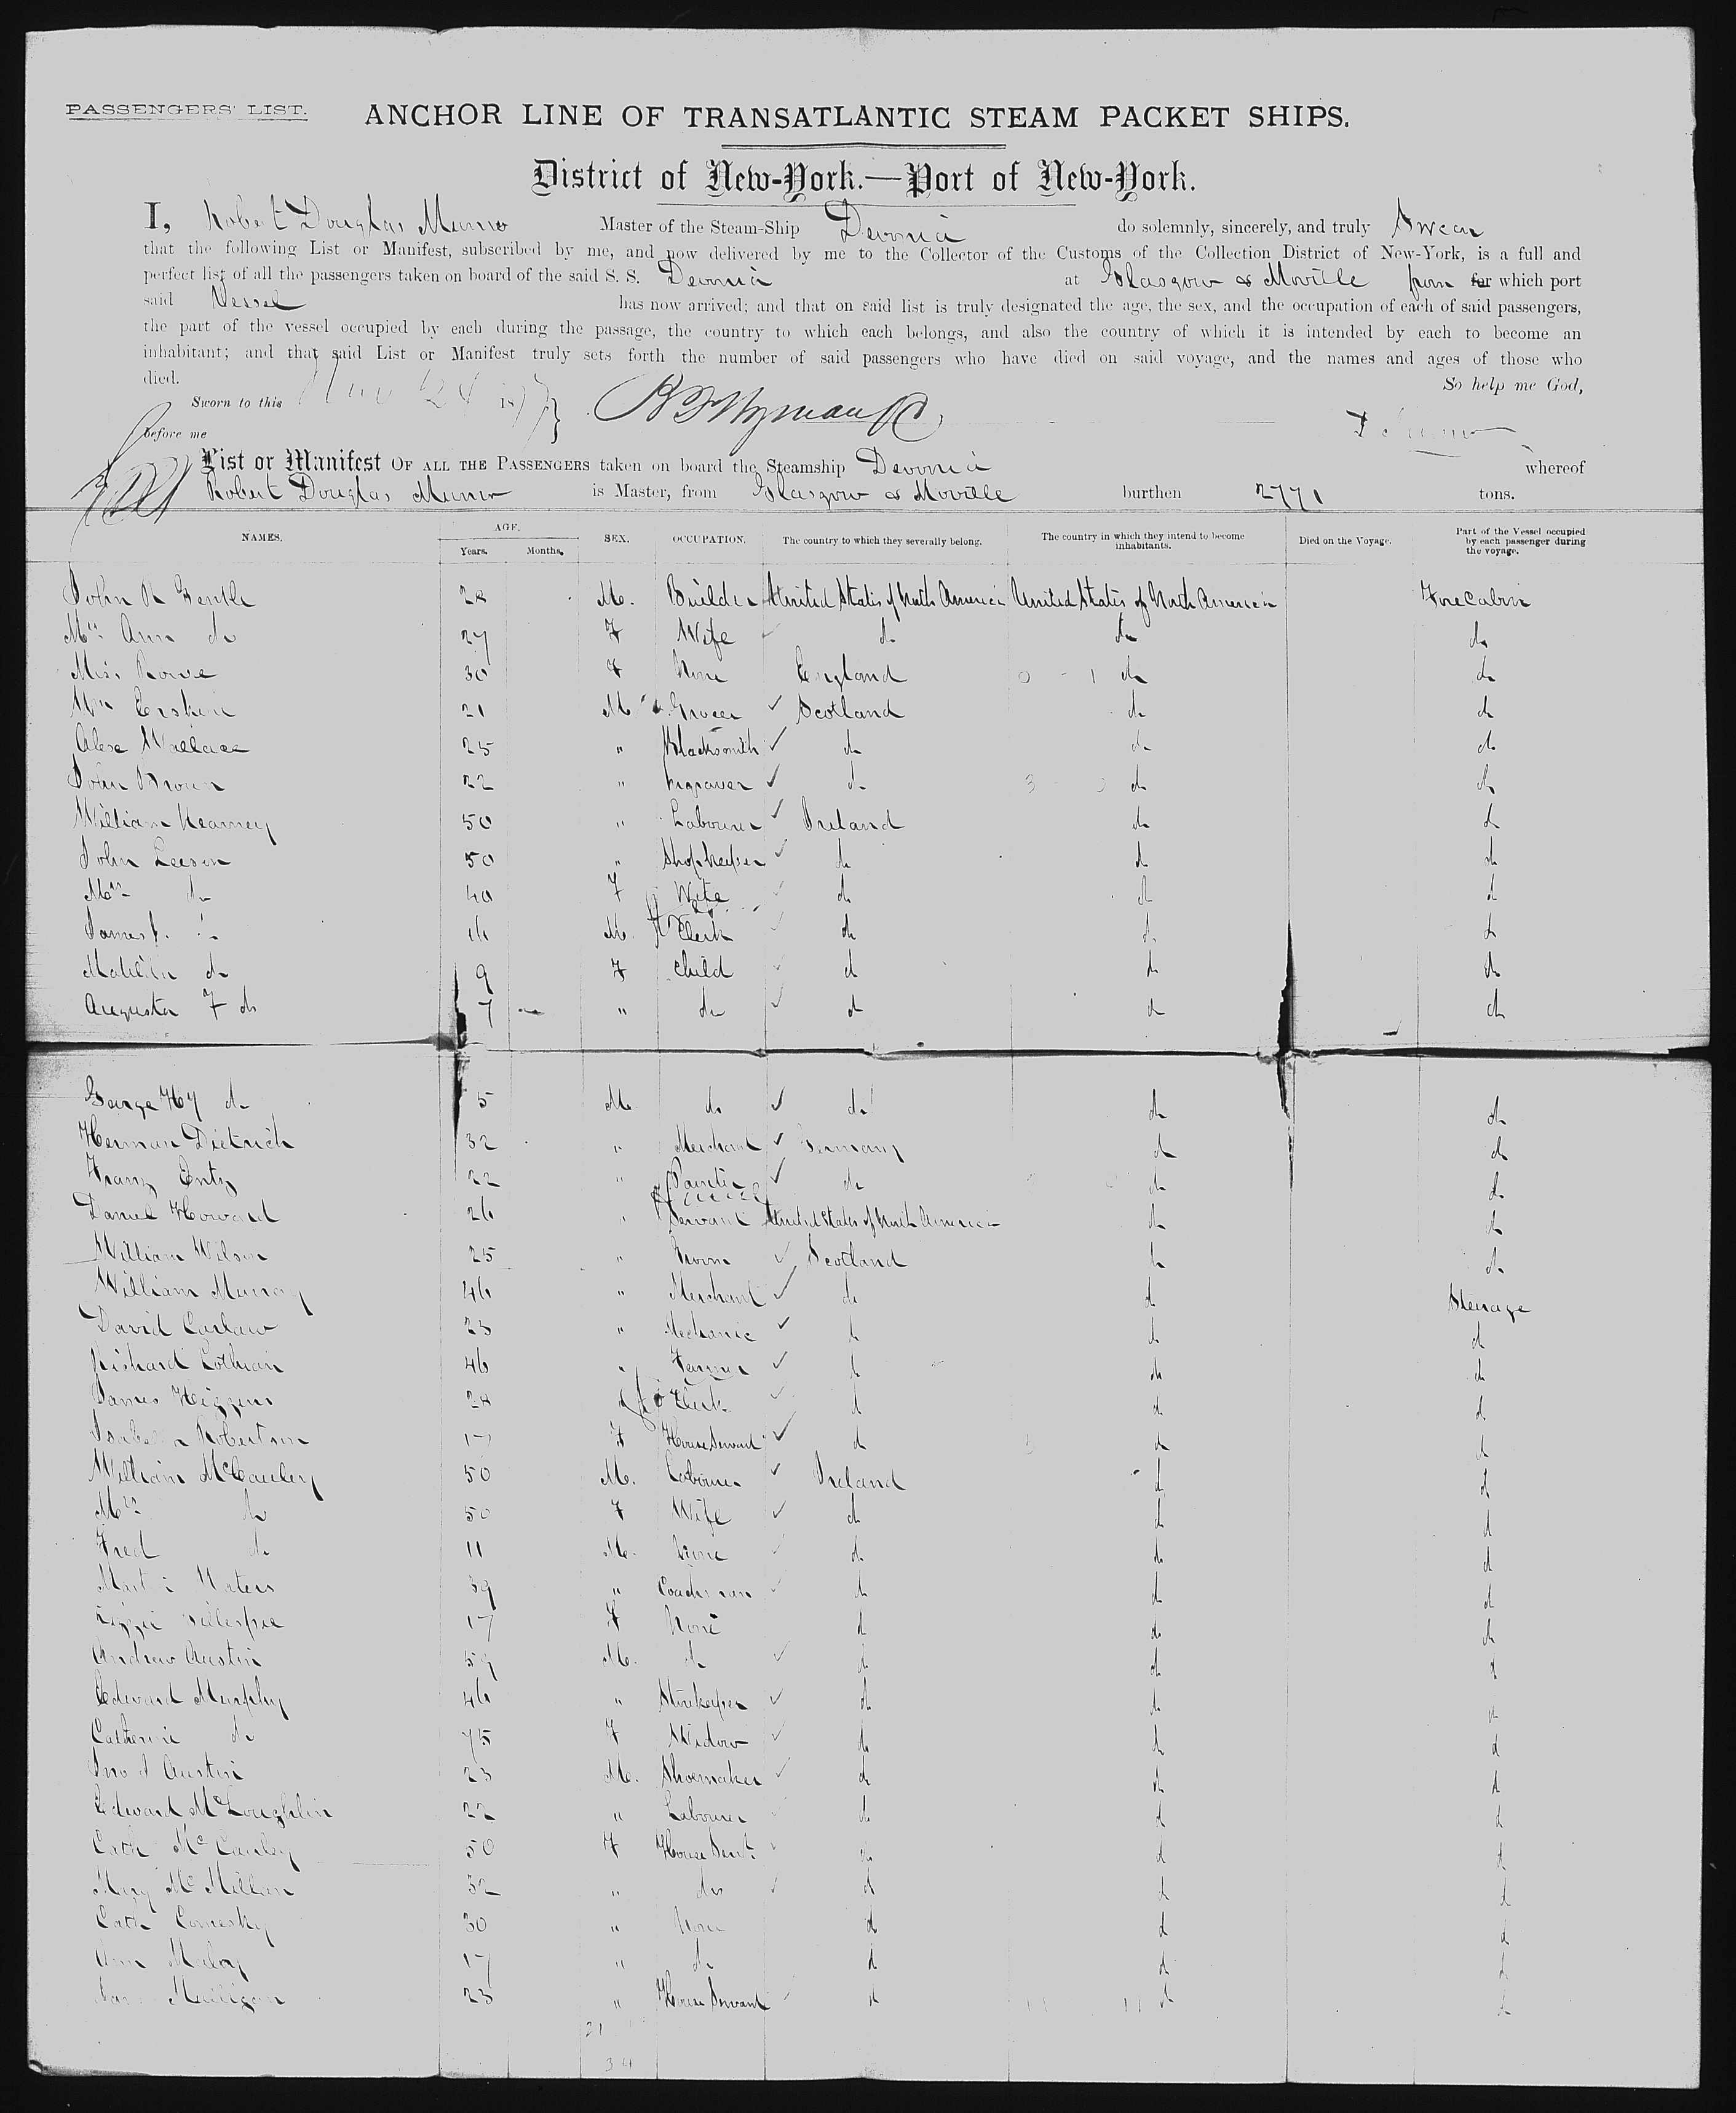 PASSENGERS' LIST.
ANCHOR LINE OF TRANSATLANTIC STEAM PACKET SHIPS.
District of New-York.—Port of New-York.
I, Robert Douglas Munro Master of the Steam-Ship Devonia do solemnly, sincerely, and truly Swear
that the following List or Manifest, subscribed by me, and now delivered by me to the Collector of the Customs of the Collection District of New-York, is a full and
perfect list of all the passengers taken on board of the said S. S. Devonia at Glasgow & Moville from for which port
said Vessel has now arrived; and that on said list is truly designated the age, the sex, and the occupation of each of said passengers,
the part of the vessel occupied by each during the passage, the country to which each belongs, and also the country of which it is intended by each to become an
inhabitant; and that said List or Manifest truly sets forth the number of said passengers who have died on said voyage, and the names and ages of those who
died. So help me God,
Sworn to this 24 1877
before me
List or Manifest OF ALL THE PASSENGERS taken on board the Steamship Devonia whereof
Robert Douglas Munro is Master, from Glasgow & Moville burthen 2771 tons.
NAMES. AGE. Years. Months. SEX. OCCUPATION. The country to which they severally belong. The country in which they intend to become inhabitants. Died on the Voyage. Part of the Vessel occupied by each passenger during the voyage.
John R Gentle 28 M. Builder United States of North America United States of North America Fore Cabin
Mrs Ann do 27 F Wife do do do
Miss Rowe 30 F None England do do
Wm Erskine 21 M Grocer Scotland do do
Alexr Wallace 25 " Blacksmith do do do
John Brown 22 " Engraver do do do
William Kearney 50 " Labourer Ireland do do
John Leeson 50 " Shopkeeper do do do
Mrs do 40 F Wife do do do
James f. do 16 M. Clerk do do do
Matilda do 9 F Child do do do
Augusta F do 7 " do do do do
George Hy do 5 M do do do do
Herman Dietrich 32 " Merchant Germany do do
Franz Entz 22 " Painter do do do
Daniel Howard 26 " Servant United States of North America do do
William Wilson 25 " Groom Scotland do do
William Murray 46 " Merchant do do Steerage
David Carlaw 23 " Mechanic do do do
Richard Lothian 46 " Farmer do do do
James Higgins 28 Clerk do do do
Isabella Robertson 17 F House Servant do do do
William McCauley 50 M. Labourer Ireland do do
Mrs do 50 F Wife do do do
Fred do 11 M. None do do do
Martin Waters 39 " Coachman do do do
Lizzie Gillespie 17 F None do do do
Andrew Austin 59 M. do do do do
Edward Murphy 46 " Storekeeper do do do
Catherine do 75 F Widow do do do
Austin 23 M. Shoemaker do do do
Edward McLoughlin 22 " Labourer do do do
Cath McCauley 50 F House Servt do do do
Mary McMillan 32 " do do do do
Cath Comesky 30 " None do do do
Ann Maloy 17 " do do do do
Mulligan 23 " House Servant do do do
21
34